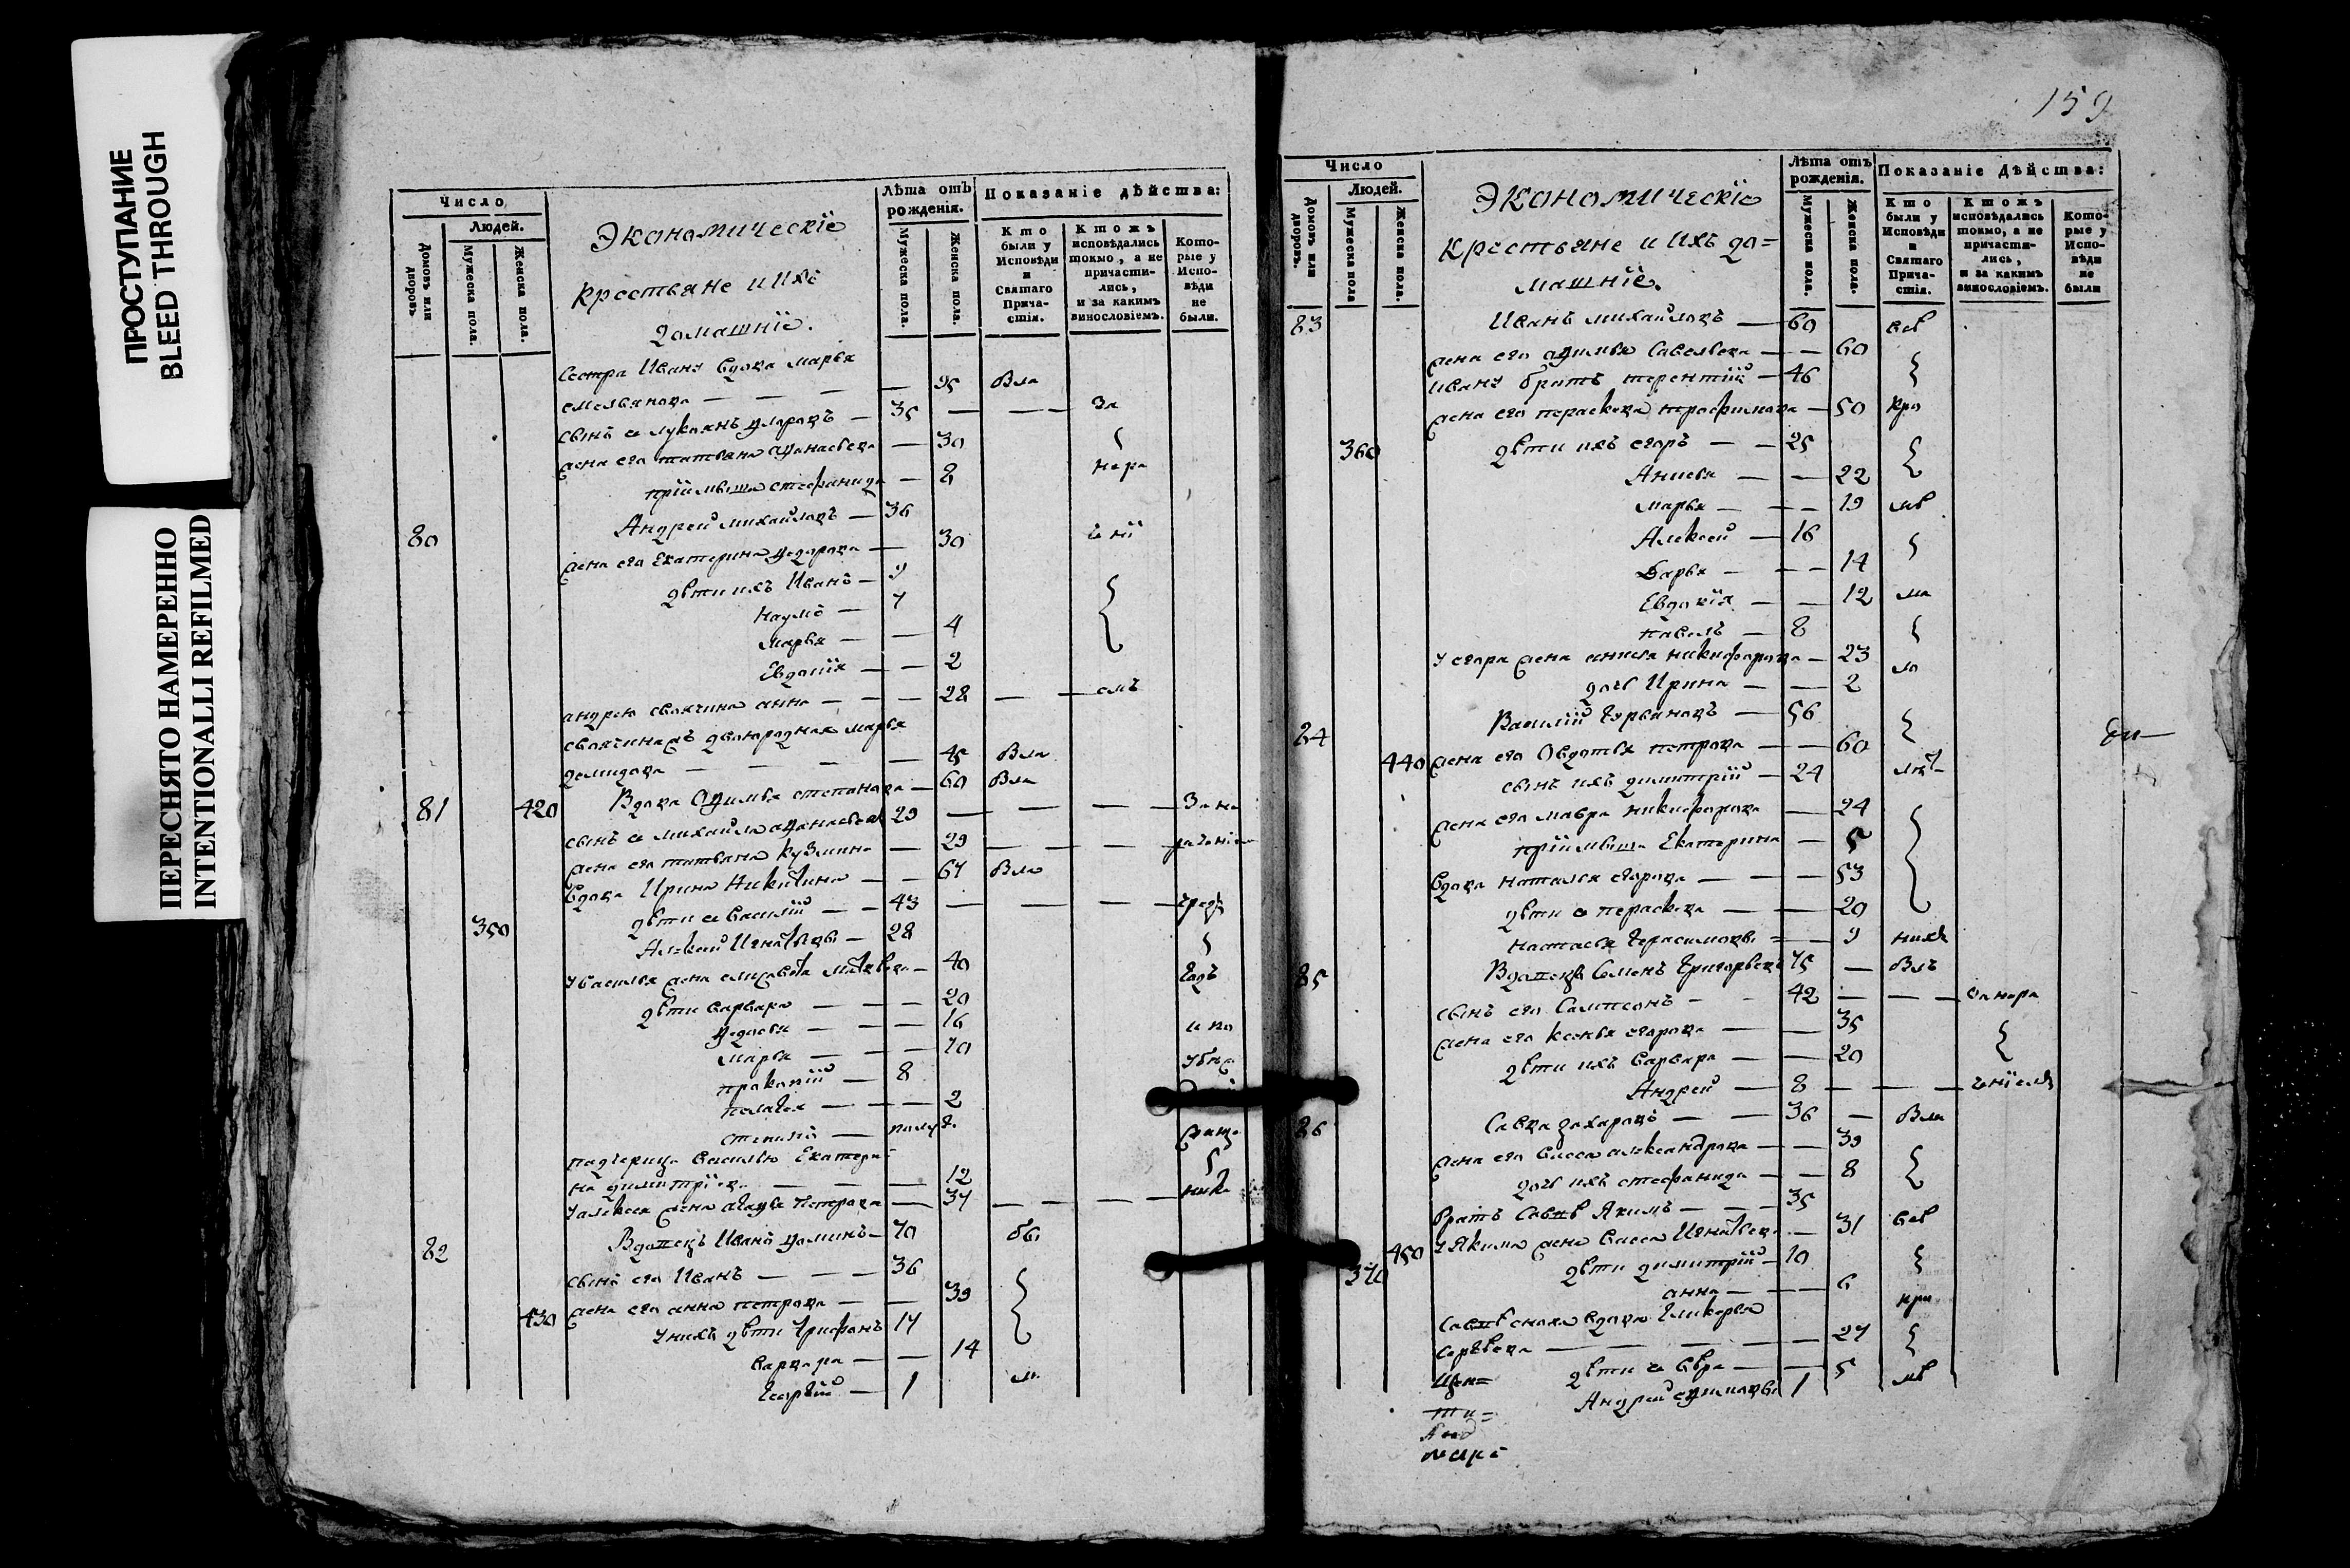 ПРОСТУПАНИЕ
BLEED THROUGH
ПЕРЕСНЯТО НАМЕРЕННО
INTENTIONALLI REFILMED
Число
Людей.
Домовъ или дворовъ.
Мужеска пола.
Женска пола.
Экономическiе
крестьяне и ихъ
домашнiе.
Лѣта отъ рожденiя.
Мужеска пола.
Женска пола.
Показанiе дѣйства:
Кто были у Исповѣди и Святаго Прича-стiя.
Ктожъ исповѣдались токмо, а не причасти-лись, и за какимъ винословiемъ.
Кото-рые у Испо-вѣди не были.
Сестра Ивану вдова марья
емельянова — — — — 95 Вла
сынъ ея лукьянъ — 35 — — — За
жена его татьяна афанасьева — 30
прiимышъ стефанида — 8 нера
80 Андрей михайловъ — 36
жена его Екатерина федорова — 30 ченiи
дѣти ихъ Иванъ — 9
наумъ — 7
марья — — 4
Евдокiя — — 2
андрею своячина анна — — — 28 — — емъ
своячинахъ двоюродная марья
демидова — — — — 45 Вла
81 420 Вдова Афимья степанова — 60 Вла
сынъ ея михайла афанасьевъ 29 — — — За не
жена его татьяна кузмина — 29 — — — раченiе
вдова Ирина Никитина — — 67 Вла
дѣти ея василiй — — 43 — — —
350 Алексѣй Игнатьевы — 28
У василья жена елисавета матвѣева — 40
дѣти варвара — — — 20
федосья — — — 16 и по
марья — — — 10
прокопiй — 8
пелагея — — — 2
степанъ —
падчерица василью Екатери
на димитрiева — — — 12
У алексея жена агафья Петрова — 37 — — —
82 Вдовецъ Иванъ фоминъ — 70 бы
сынъ его Иванъ — — — 36
430 жена его анна петрова — — 39
у нихъ дѣти Трифонъ 17
варвара — — 14
Георгiй — 1 ли
159
Число
Людей.
Домовъ или дворовъ.
Мужеска пола
Женска пола.
Экономическiе
крестьяне и ихъ до=
машнiе.
Лѣта отъ рожденiя.
Мужеска пола.
Женска пола.
Показанiе Дѣйства:
Кто были у Исповѣди и Святаго Прича-стiя.
Ктожъ исповѣдались токмо, а не причасти-лись, и за какимъ винословiемъ.
Кото-рые у Испо-вѣди не были
83 Иванъ михайловъ — 60 всѣ
жена его афимья Савельева — — 60
ивану братъ терентiй — 46
жена его параскева трофимова — 50 кро
360 дѣти ихъ егоръ — — 25
Анисья — — 22
марья — — — 19 мѣ
Алексей — 16
Дарья — — — 14
Евдокiя — — 12 ма
павелъ — 8
У егора жена анисья никифорова — 23 ло
дочь Ирина — — 2
84 Василiй — 56
440 жена его Овдотья петрова — — 60
сынъ ихъ димитрiй — 24
жена его мавра никифорова — 24
прiимышъ Екатерина — 5
вдова наталья егорова — — — 53
дѣти ея параскева — — 20
настасья Герасимовы = — 9 нихъ
85 Вдовецъ Семенъ Григорьевъ 75 — Влъ
сынъ его Сампсонъ — — 42 — — — За нера
жена его ксенья егорова — — 35
дѣти ихъ варвара — — 20
Андрей — 8 — — — ченiемъ
86 Савва захаровъ — — 36 — Вла
жена его васса александрова — — 39
дочь ихъ стефанида — — 8
братъ Саввѣ Якимъ — — — 35
450 У Якима жена васса Игнатьева — 31 всѣ
370 дѣти димитрiй — 10
анна — — — 6
Саввѣ сноха вдова Гликерья при
Сергѣева — — — — — 27
дѣти ея — — 5 мѣ
Андрей ефимовы 1